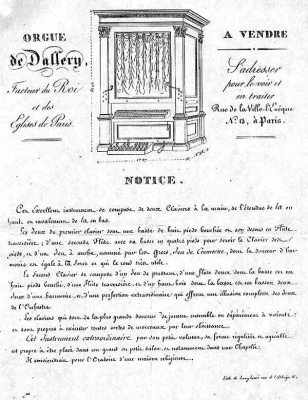 ORGUE
de Dallery,
Facteur du Roi
et des
Eglises de Paris.
A VENDRE
S'adresser
pour le voir et
en traiter
Rue de la Ville-l'Evêque
N.º 13, à Paris.
NOTICE.
Cet Excellent instrument se compose de deux Claviers à la main, de l'étendue de fa en
haut en ravalement de la en bas.
Les deux du premier clavier sont une basse de huit pieds bouchée en son dessus en Flûte
traversière, d'une seconde Flûte avec sa basse en quatre pieds pour servir le Clavier des
pieds, et d'un Jeu à anche, nommé par les Grecs Jeu de Cromorne, dont la douceur d'har-
monie est égale à la force ce qui le rend très utile.
Le Second Clavier se compose d'un Jeu de prestant, d'une flûte douce dont la basse est en
huit pieds bouché, d'une flûte traversière et d'un haut-bois dont la basse est en basson, deux
Jeux d'une harmonie et d'une perfection extraordinaire qui offrent une illusion complète des Jeux
de l'Orchestre.
Les claviers qui sont de la plus grande douceur se jouent ensemble ou séparément à volonté
et sont propres à exécuter toutes sortes de morceaux par leur obéissance.
Cet instrument extraordinaire par son petit volume, sa forme régulière et agréable
est propre à être placé dans un grand ou petit salon, et notamment dans une Chapelle.
Il conviendrait pour l'Oratoire d'une maison religieuse.
Lith. de Langlumé rue de l'Abbaye N.